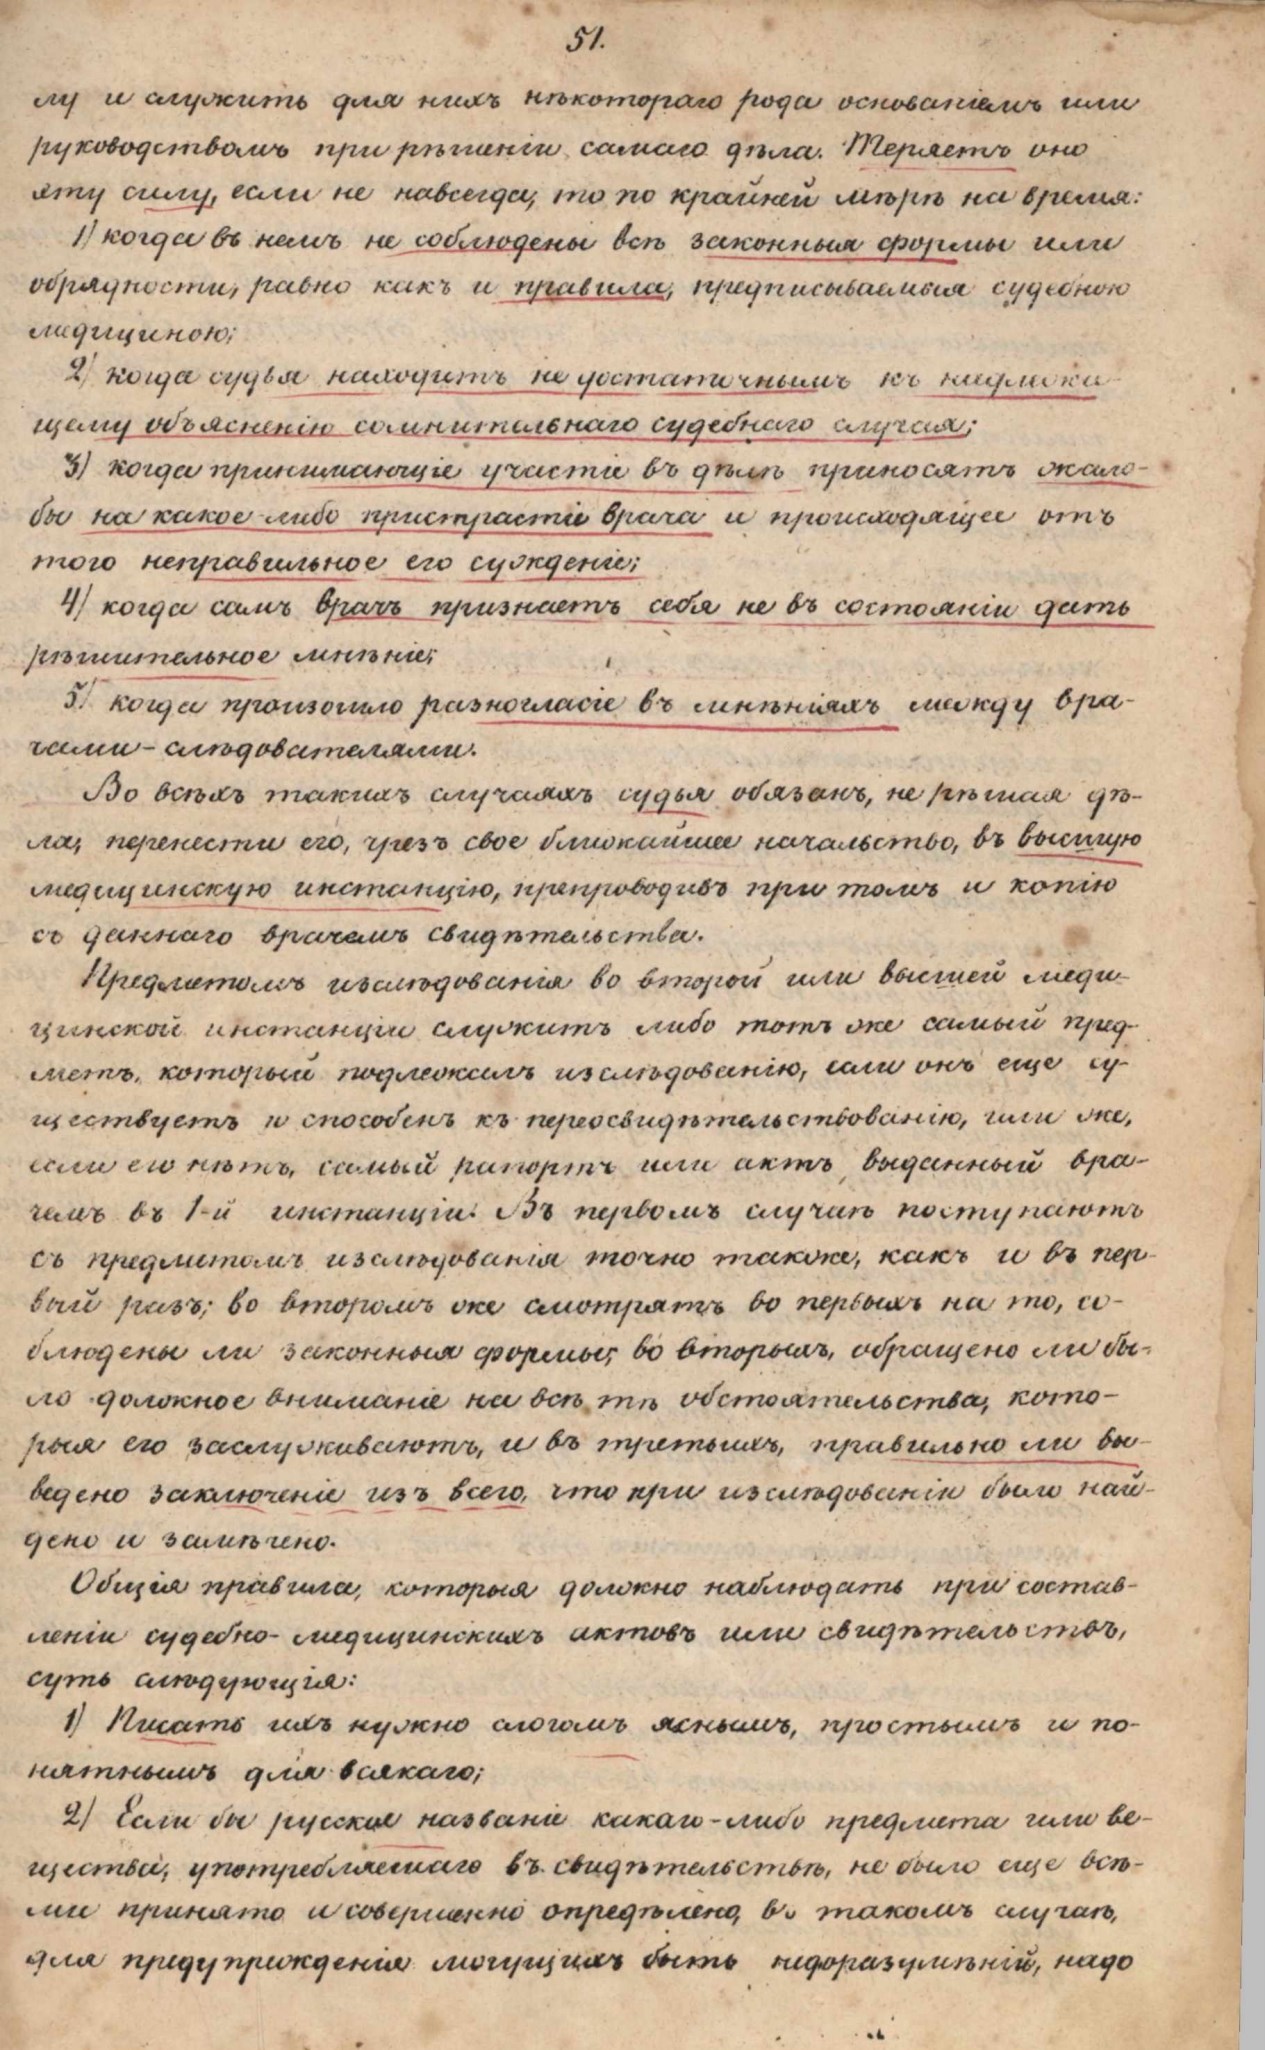 51.
лу и служить для нихъ нѣкотораго рода основаніемъ или
руководствомъ при рѣшеніи самаго дѣла. Теряетъ оно
эту силу, если не навсегда, то по крайней мѣрѣ на время:
1) когда въ немъ не соблюдены всѣ законныя формы или
обрядности, равно какъ и правила, предписываемыя судебною
медициною;
2) когда судья находитъ не достаточнымъ къ надлежа-
щему объясненію сомнительнаго судебнаго случая;
3) когда принимающіе участіе въ дѣлѣ приносятъ жало-
бы на какое-либо пристрастіе врача и происходящее отъ
того неправильное его сужденіе;
4) когда самъ врачъ признаетъ себя не въ состояніи дать
рѣшительное мнѣніе;
5) когда произошло разногласіе въ мнѣніяхъ между вра-
чами-слѣдователями.
Во всѣхъ такихъ случаяхъ судья обязанъ, не рѣшая дѣ-
ла, перенести его, чрезъ свое ближайшее начальство, въ высшую
медицинскую инстанцію, препроводивъ при томъ и копію
съ даннаго врачемъ свидѣтельства.
Предметомъ изслѣдованія во второй или высшей меди-
цинской инстанціи служитъ либо тотъ же самый пред-
метъ, который подлежалъ изслѣдованію, если онъ еще су-
ществуетъ и способенъ къ переосвидѣтельствованію, или же,
если его нѣтъ, самый рапортъ или актъ, выданный вра-
чемъ въ 1-й инстанціи. Въ первомъ случаѣ поступаютъ
съ предметомъ изслѣдованія точно также, какъ и въ пер-
вый разъ; во второмъ же смотрятъ во первыхъ на то, со-
блюдены ли законныя формы; во вторыхъ, обращено ли бы-
ло должное вниманіе на всѣ тѣ обстоятельства, кото-
рыя его заслуживаютъ, и въ третьихъ, правильно ли вы-
ведено заключеніе изъ всего, что при изслѣдованіи было най-
дено и замѣчено.
Общія правила, которыя должно наблюдать при состав-
леніи судебно-медицинскихъ актовъ или свидѣтельствъ,
суть слѣдующія:
1) Писать ихъ нужно слогомъ яснымъ, простымъ и по-
нятнымъ для всякаго;
2) Если бы русское названіе какаго-либо предмета или ве-
щества, употребляемаго въ свидѣтельствѣ, не было еще всѣ-
ми принято и совершенно опредѣлено, въ такомъ случаѣ,
для предупрежденія могущихъ быть недоразумѣній, надо